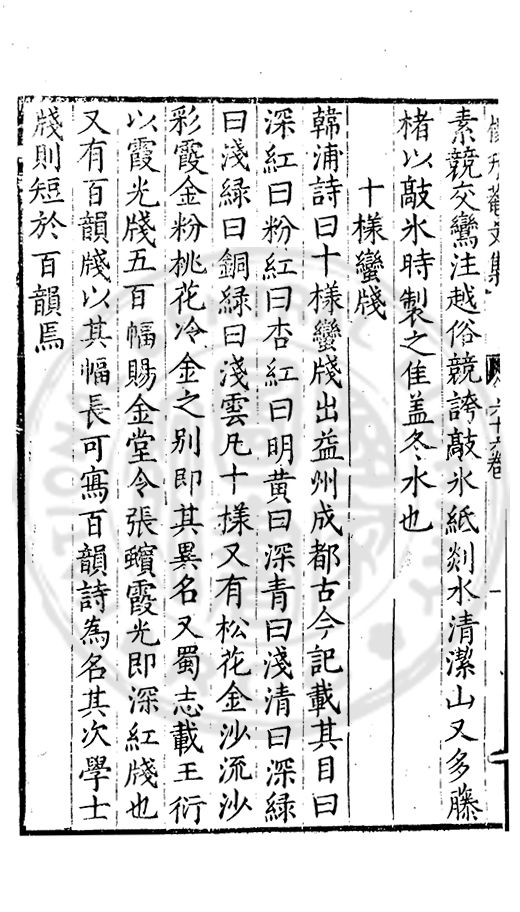 文集 六十六卷 一
素競交鸞注越俗競誇敲氷紙剡水清潔山又多藤
楮以敲氷時製之佳盖冬水也
十樣蠻牋
韓浦詩曰十樣蠻牋出益州成都古今記載其目曰
深紅曰粉紅曰杏紅曰明黄曰深青曰淺清曰深緑
曰淺緑曰銅緑曰淺雲凡十樣又有松花金沙流沙
彩霞金粉桃花冷金之别即其異名又蜀志載王衍
以霞光牋五百幅賜金堂令張蠙霞光即深紅牋也
又有百韻牋以其幅長可寫百韻詩為名其次學士
牋則短於百韻焉